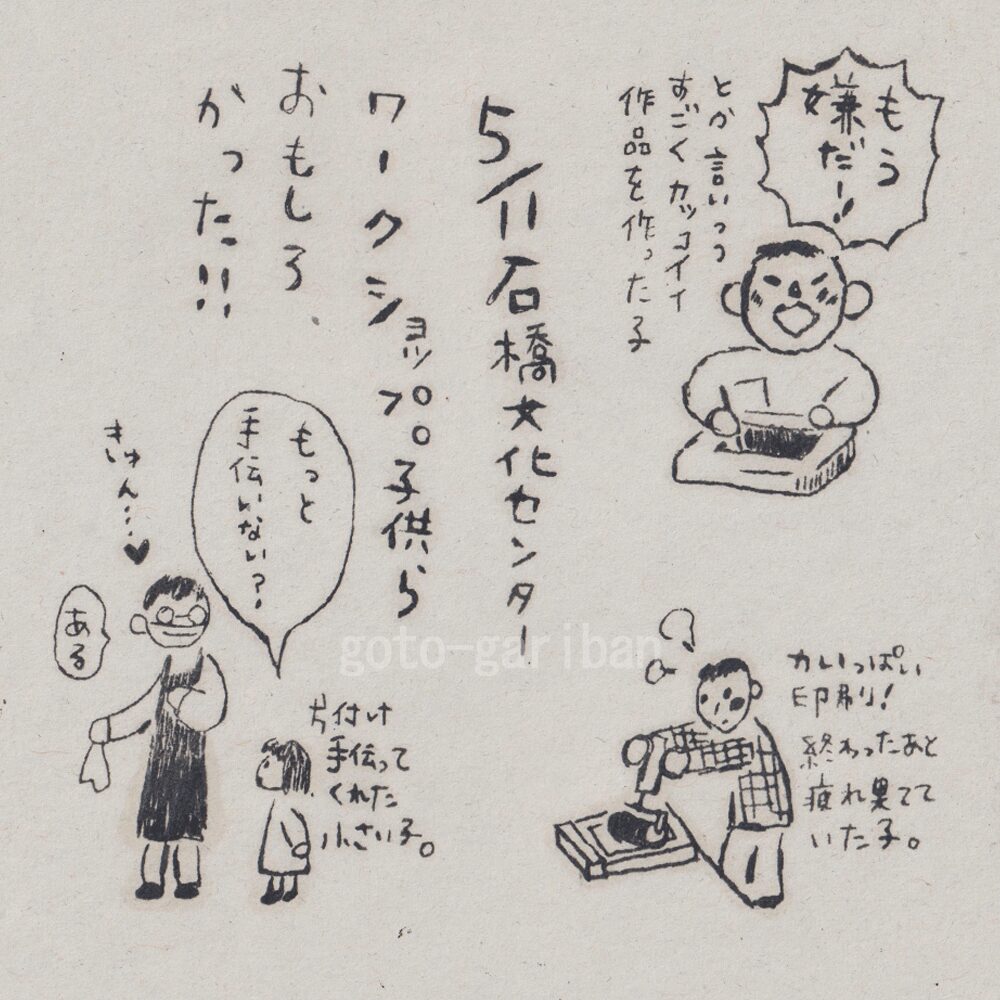 もう
嫌だー!
とか言いつつ
すごくカッコイイ
作品を作った子
5/11 石橋文化センター
ワークショップ。子供ら
おもしろ
かった!!
もっと
手伝いない?
きゅん…♥
ある
片付け
手伝って
くれた
小さい子。
力いっぱい
印刷!
終わったあと
疲れ果てて
いた子。
goto-gariban